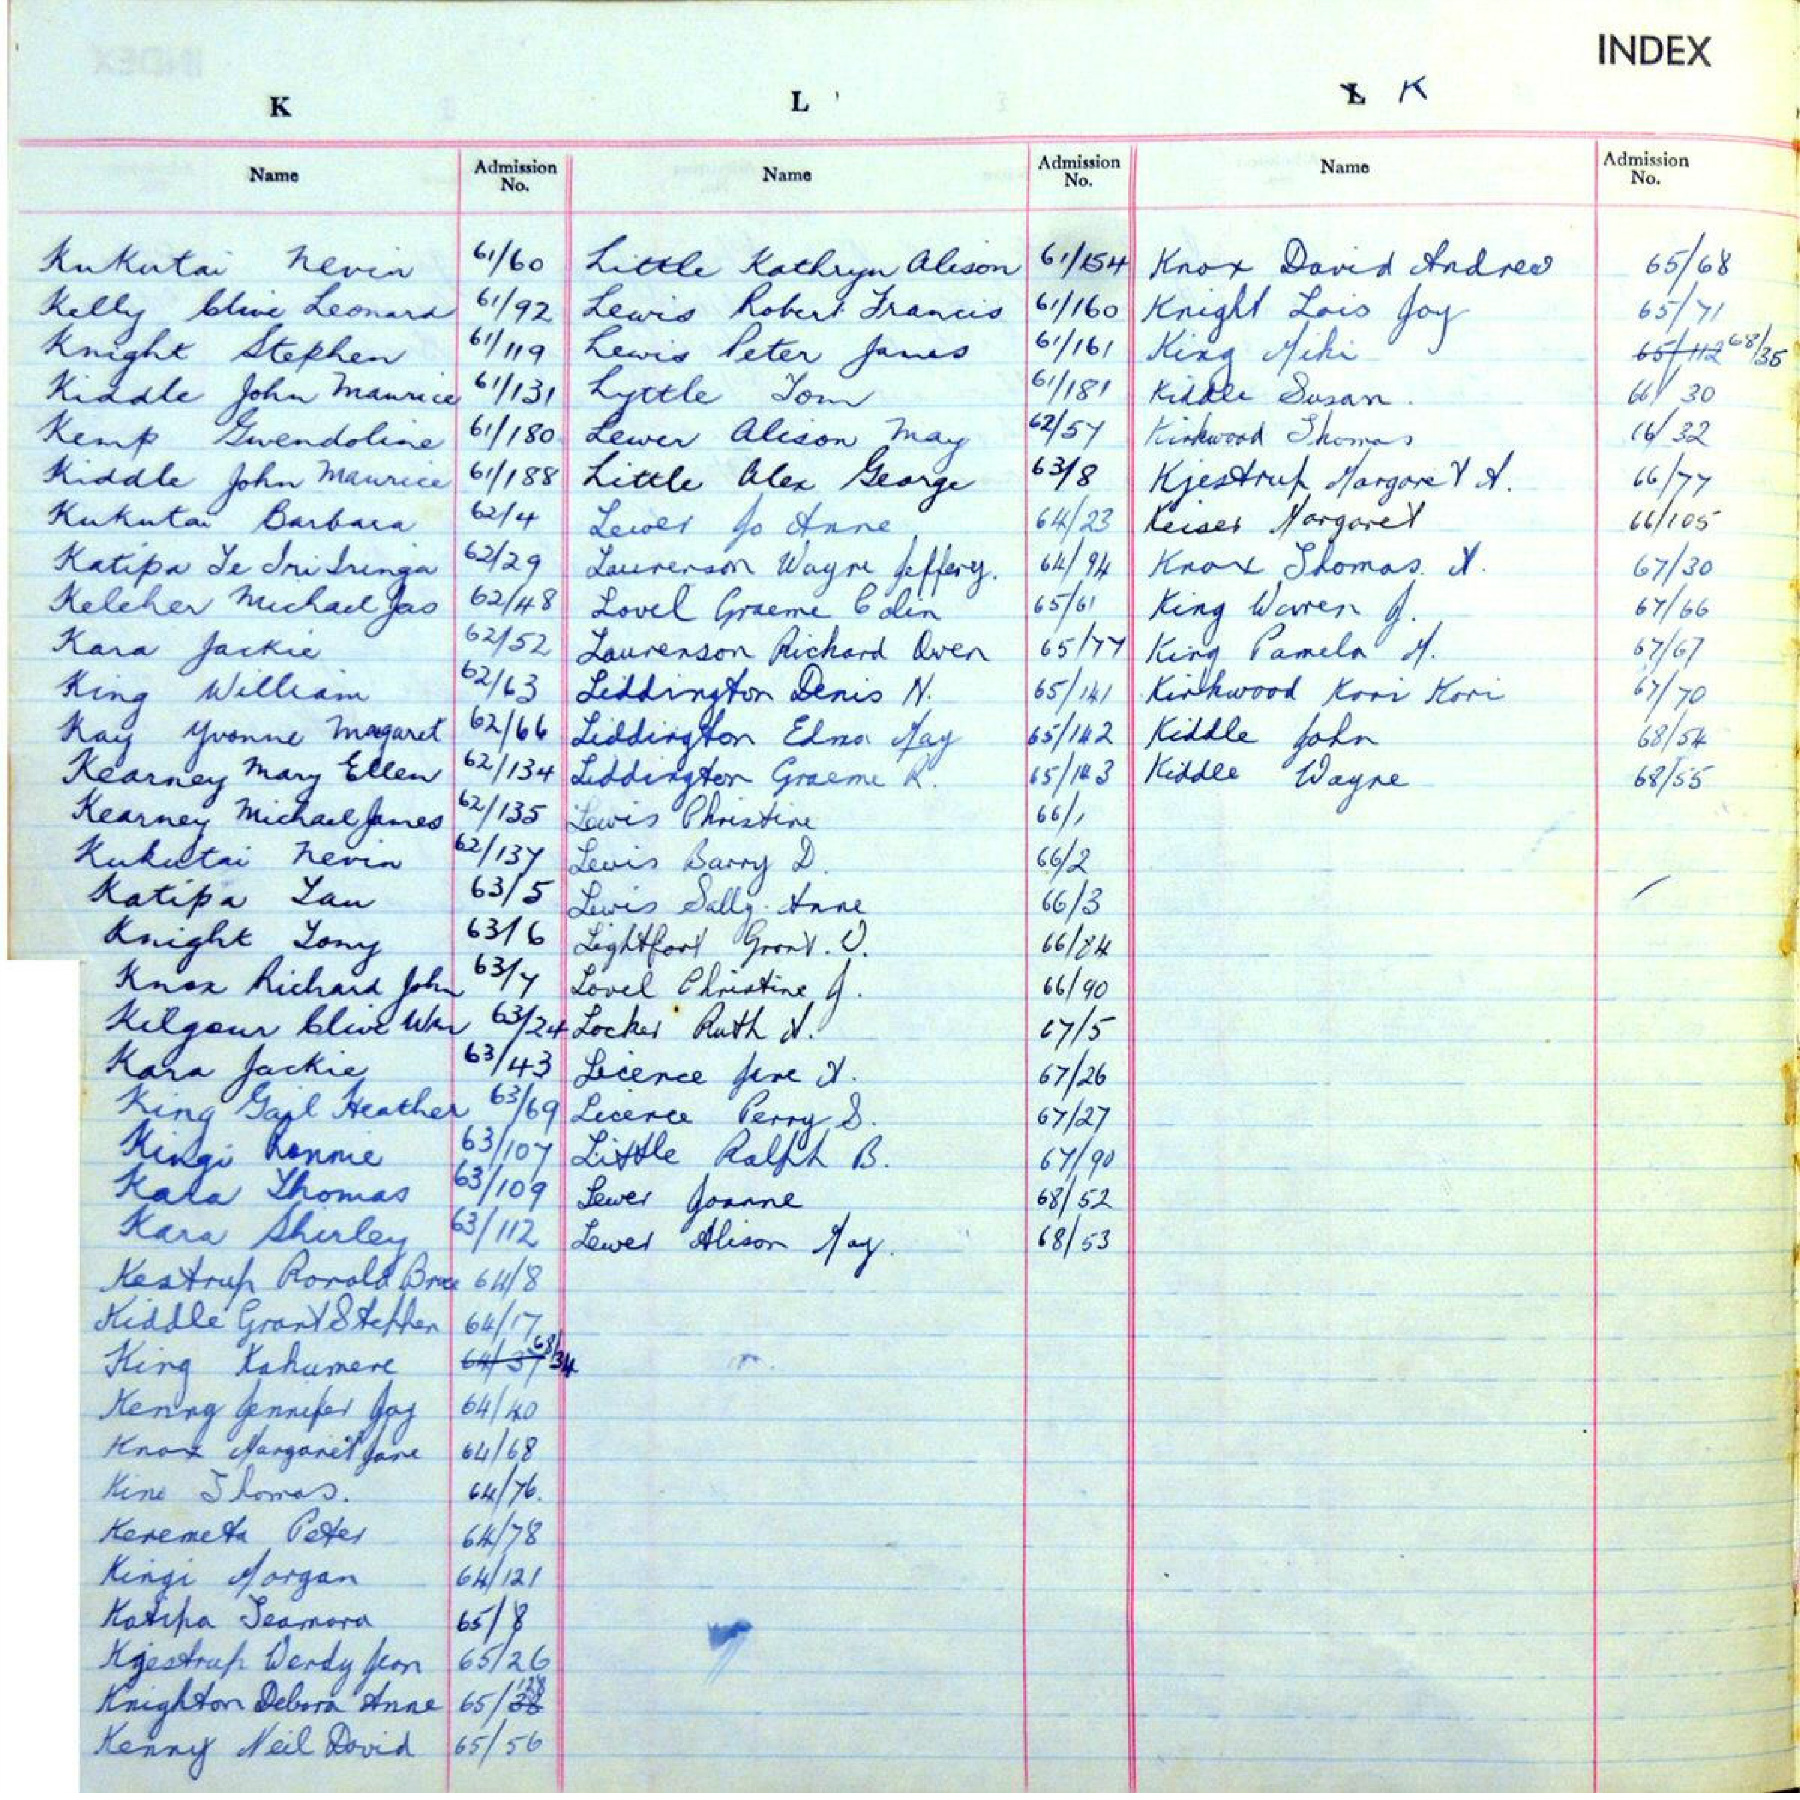 INDEX
K
Name Admission No.
Kukutai Nevin 61/60
Kelly Clive Leonard 61/92
Knight Stephen 61/119
Kiddle John Maurice 61/131
Kemp Gwendoline 61/180
Kiddle John Maurice 61/188
Kukutai Barbara 62/4
Katipa Te Iri Iringa 62/29
Keleher Michael Jas 62/48
Kara Jackie 62/52
King William 62/63
Kay Yvonne Magaret 62/66
Kearney Mary Ellen 62/134
Kearney Michael James 62/135
Kukutai Nevin 62/137
Katipa Tau 63/5
Knight Tony 63/6
Knox Richard John 63/7
Kilgour Clive Wm 63/24
Kara Jackie 63/43
King Gail Heather 63/69
Kingi Ronnie 63/107
Kara Thomas 63/109
Kara Shirley 63/112
Kestrup Ronald Bruce 64/8
Kiddle Grant Stephen 64/17
King Kahumere 64/37 68/34
Kenny Jennifer Joy 64/40
Knox Margaret Jane 64/68
King Thomas. 64/76.
Keremeta Peter 64/78
Kingi Morgan 64/121
Katipa Teamora 65/8
Kjestrup Wendy Jean 65/26
Knighton Debora Anne 65/38 128
Kenny Neil David 65/56
L
Name Admission No.
Little Kathryn Alison 61/154
Lewis Robert Francis 61/160
Lewis Peter James 61/161
Lyttle Tom 61/181
Lewer Alison May 62/57
Little Alex George 63/8
Lewer Jo Anne 64/23
Laurenson Wayne Jeffery. 64/94
Lovel Graeme Colin 65/61
Laurenson Richard Owen 65/77
Liddington Denis N. 65/141
Liddington Edna May 65/142
Liddington Graeme R. 65/143
Lewis Christine 66/1
Lewis Barry D. 66/2
Lewis Sally-Anne 66/3
Lightfoot Grant. V. 66/84
Lovel Christine J. 66/90
Locker Ruth A. 67/5
Licence Jane A. 67/26
Licence Perry S. 67/27
Little Ralph B. 67/90
Lewer Joanne 68/52
Lewer Alison May. 68/53
L K
Name Admission No.
Knox David Andrew 65/68
Knight Lois Joy 65/71
King Miki 65/112 68/35
Kiddle Susan. 66/30
Kirkwood Thomas 66/32
Kjestrup Margaret A. 66/77
Keiser Margaret 66/105
Knox Thomas. A. 67/30
King Warren J. 67/66
King Pamela M. 67/67
Kirkwood Kori Kori 67/70
Kiddle John 68/54
Kiddle Wayne 68/55